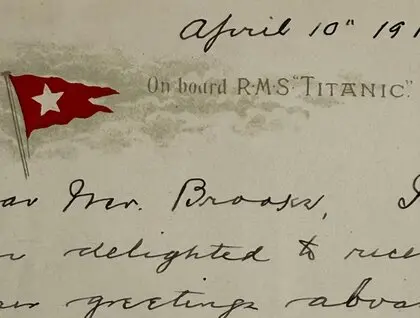 April 10" 191
On board R·M·S. "TITANIC".
ar Mr. Brooks, I
delighted to rece
greetings aboa